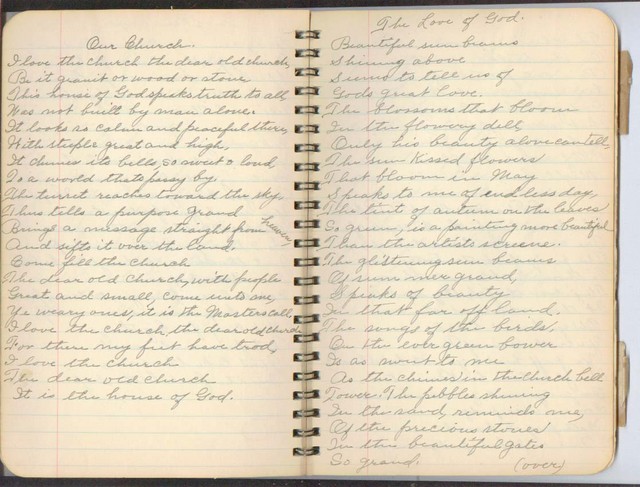 Our Church.
I love the church the dear old church,
Be it granit or wood or stone
This house of God speaks truth to all,
Was not built by man alone.
It looks so calm and peaceful there,
With steeple great and high,
It chimes its bells, so sweet & loud,
To a world thats passing by
The turret reaches toward the sky,
Thus tells a purpose grand
Brings a message straight from heaven,
And sifts it over the land.
Come fill the church
The dear old church, with people
Great and small, come unto me,
Ye weary ones, it is the Masters call,
I love the church, the dear old church
For there my feet have trod,
I love the church
The dear old church
It is the house of God.
The Love of God.
Beautiful sun beams
Shining above
Seems to tell us of
Gods great love.
The blossoms that bloom
In the flowery dell,
Only his beauty alove can tell,
The sun kissed flowers
That bloom in May
Speaks to me of endless day,
The tint of autum on the leaves
So green, is a painting more beautiful
Than the artists screens.
The glistning sun beams
Of summer grand,
Speaks of beauty
In that far off land.
The songs of the birds,
On the ever green bower
Is as sweet to me
As the chimes in the Church bell
Tower. The pebbles shining
In the sand, reminds me,
Of the precious stones
In the beautiful gates
So grand.
(over)